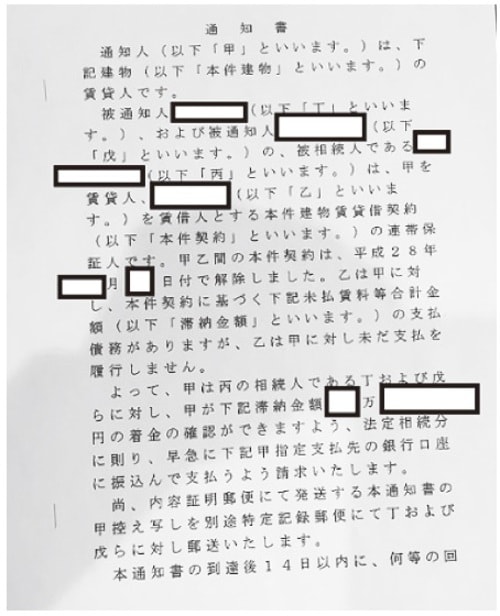 通知書
通知人（以下「甲」といいます。）は、下
記建物（以下「本件建物」といいます。）の
賃貸人です。
被通知人（以下「丁」といいま
す。）、および被通知人（以下
「戊」といいます。）の、被相続人である
（以下「丙」といいます。）は、甲を
賃貸人、（以下「乙」といいま
す。）を賃借人とする本件建物賃貸借契約
（以下「本件契約」といいます。）の連帯保
証人です。甲乙間の本件契約は、平成２８年
月日付で解除しました。乙は甲に対
し、本件契約に基づく下記未払賃料等合計金
額（以下「滞納金額」といいます。）の支払
債務がありますが、乙は甲に対し未だ支払を
履行しません。
よって、甲は丙の相続人である丁および戊
らに対し、甲が下記滞納金額万
円の着金の確認ができますよう、法定相続分
に則り、早急に下記甲指定支払先の銀行口座
に振込んで支払うよう請求いたします。
尚、内容証明郵便にて発送する本通知書の
甲控え写しを別途特定記録郵便にて丁および
戊らに対し郵送いたします。
本通知書の到達後１４日以内に、何等の回